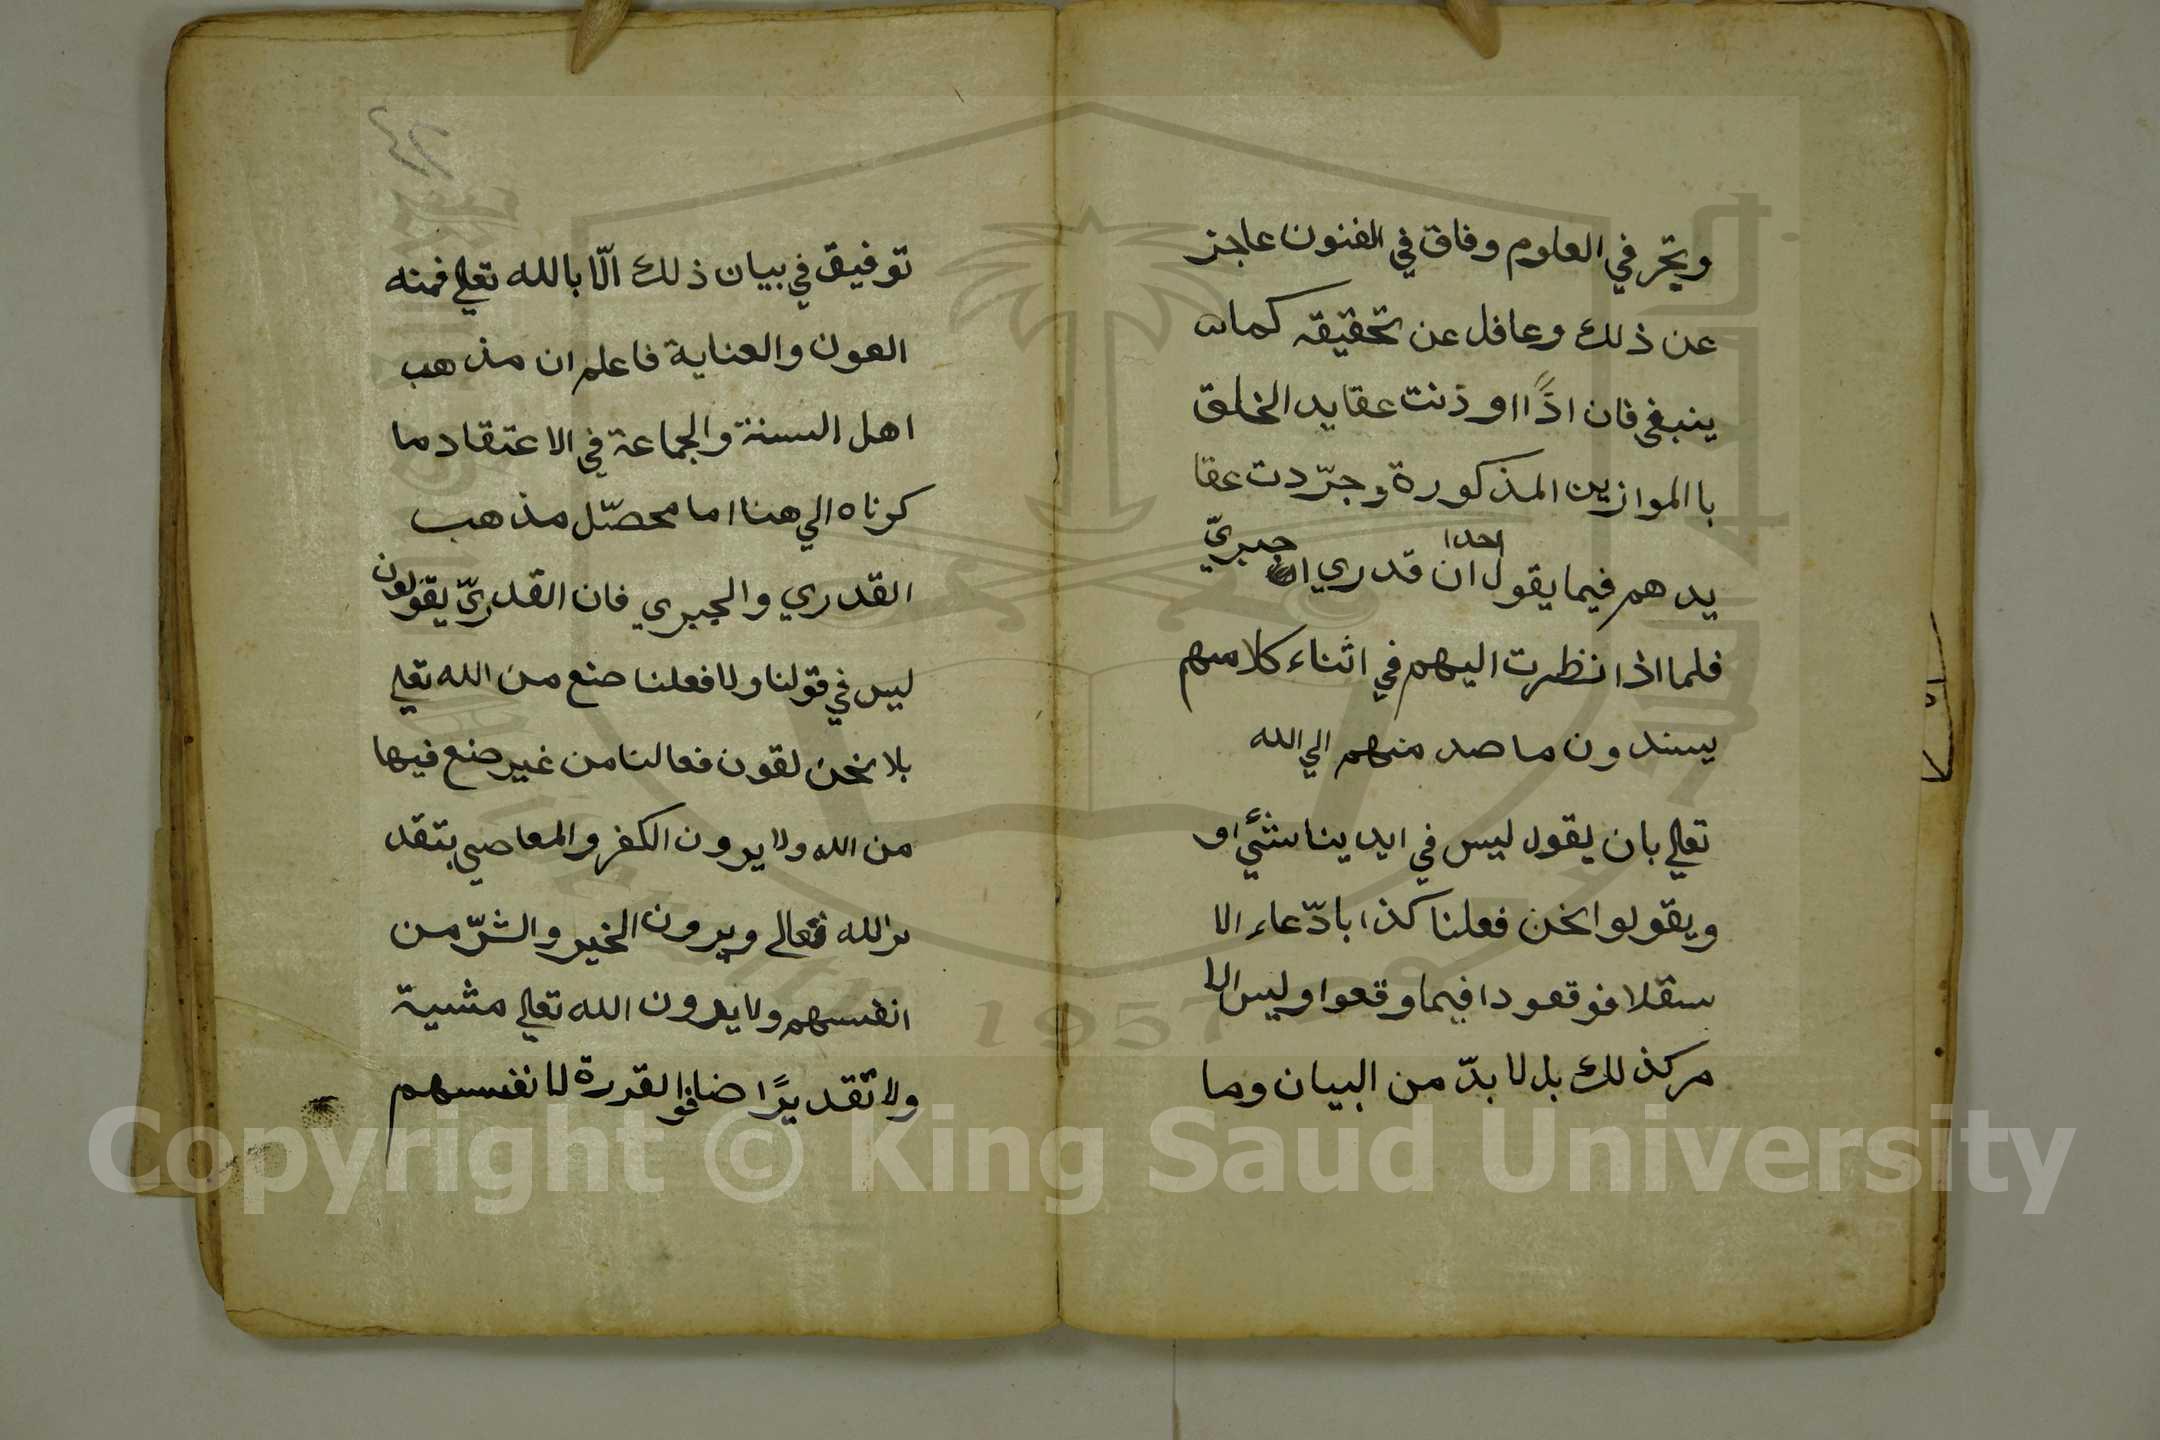 وتبحر في العلوم وفاق في الفنون عاجز
عن ذلك وعافل عن تحقيقه كما
ينبغي فان اذًا اوذنت عقايد الخلق
با الموازين المذكورة وجرّدت عقا
يدهم فيما يقول احدا ان قدري او جبريّ
فلما اذا نظرت اليهم في اثناء كلامهم
يسندون ما صد منهم الي الله
تعالي بان يقول ليس في ايدينا شئي او
ويقولوا نحن فعلنا كذا بادّعاء الا
ستقلا فوقعودا فيما وقعوا وليس الا
مر كذلك بل لا بدّ من البيان وما
توفيق في بيان ذلك الّا بالله تعلي فمنه
العون والعناية فاعلم ان مذهب
اهل السنة والجماعة في الاعتقاد ما
كرناه الي هنا اما محصّل مذهب
القدري والجبري فان القدريّ يقولون
ليس في قولنا ولا فعلنا صنع من الله تعلي
بلا نحن لقون فعالنا من غير صنع فيها
من الله ولا يرون الكفر والمعاصي بتقد
ير الله تعالي ويرون الخير والشرّ من
انفسهم ولا يرون الله تعلي مشية
ولا تقديرًا ضافوا القدرة لانفسهم
1957
Copyright © King Saud University